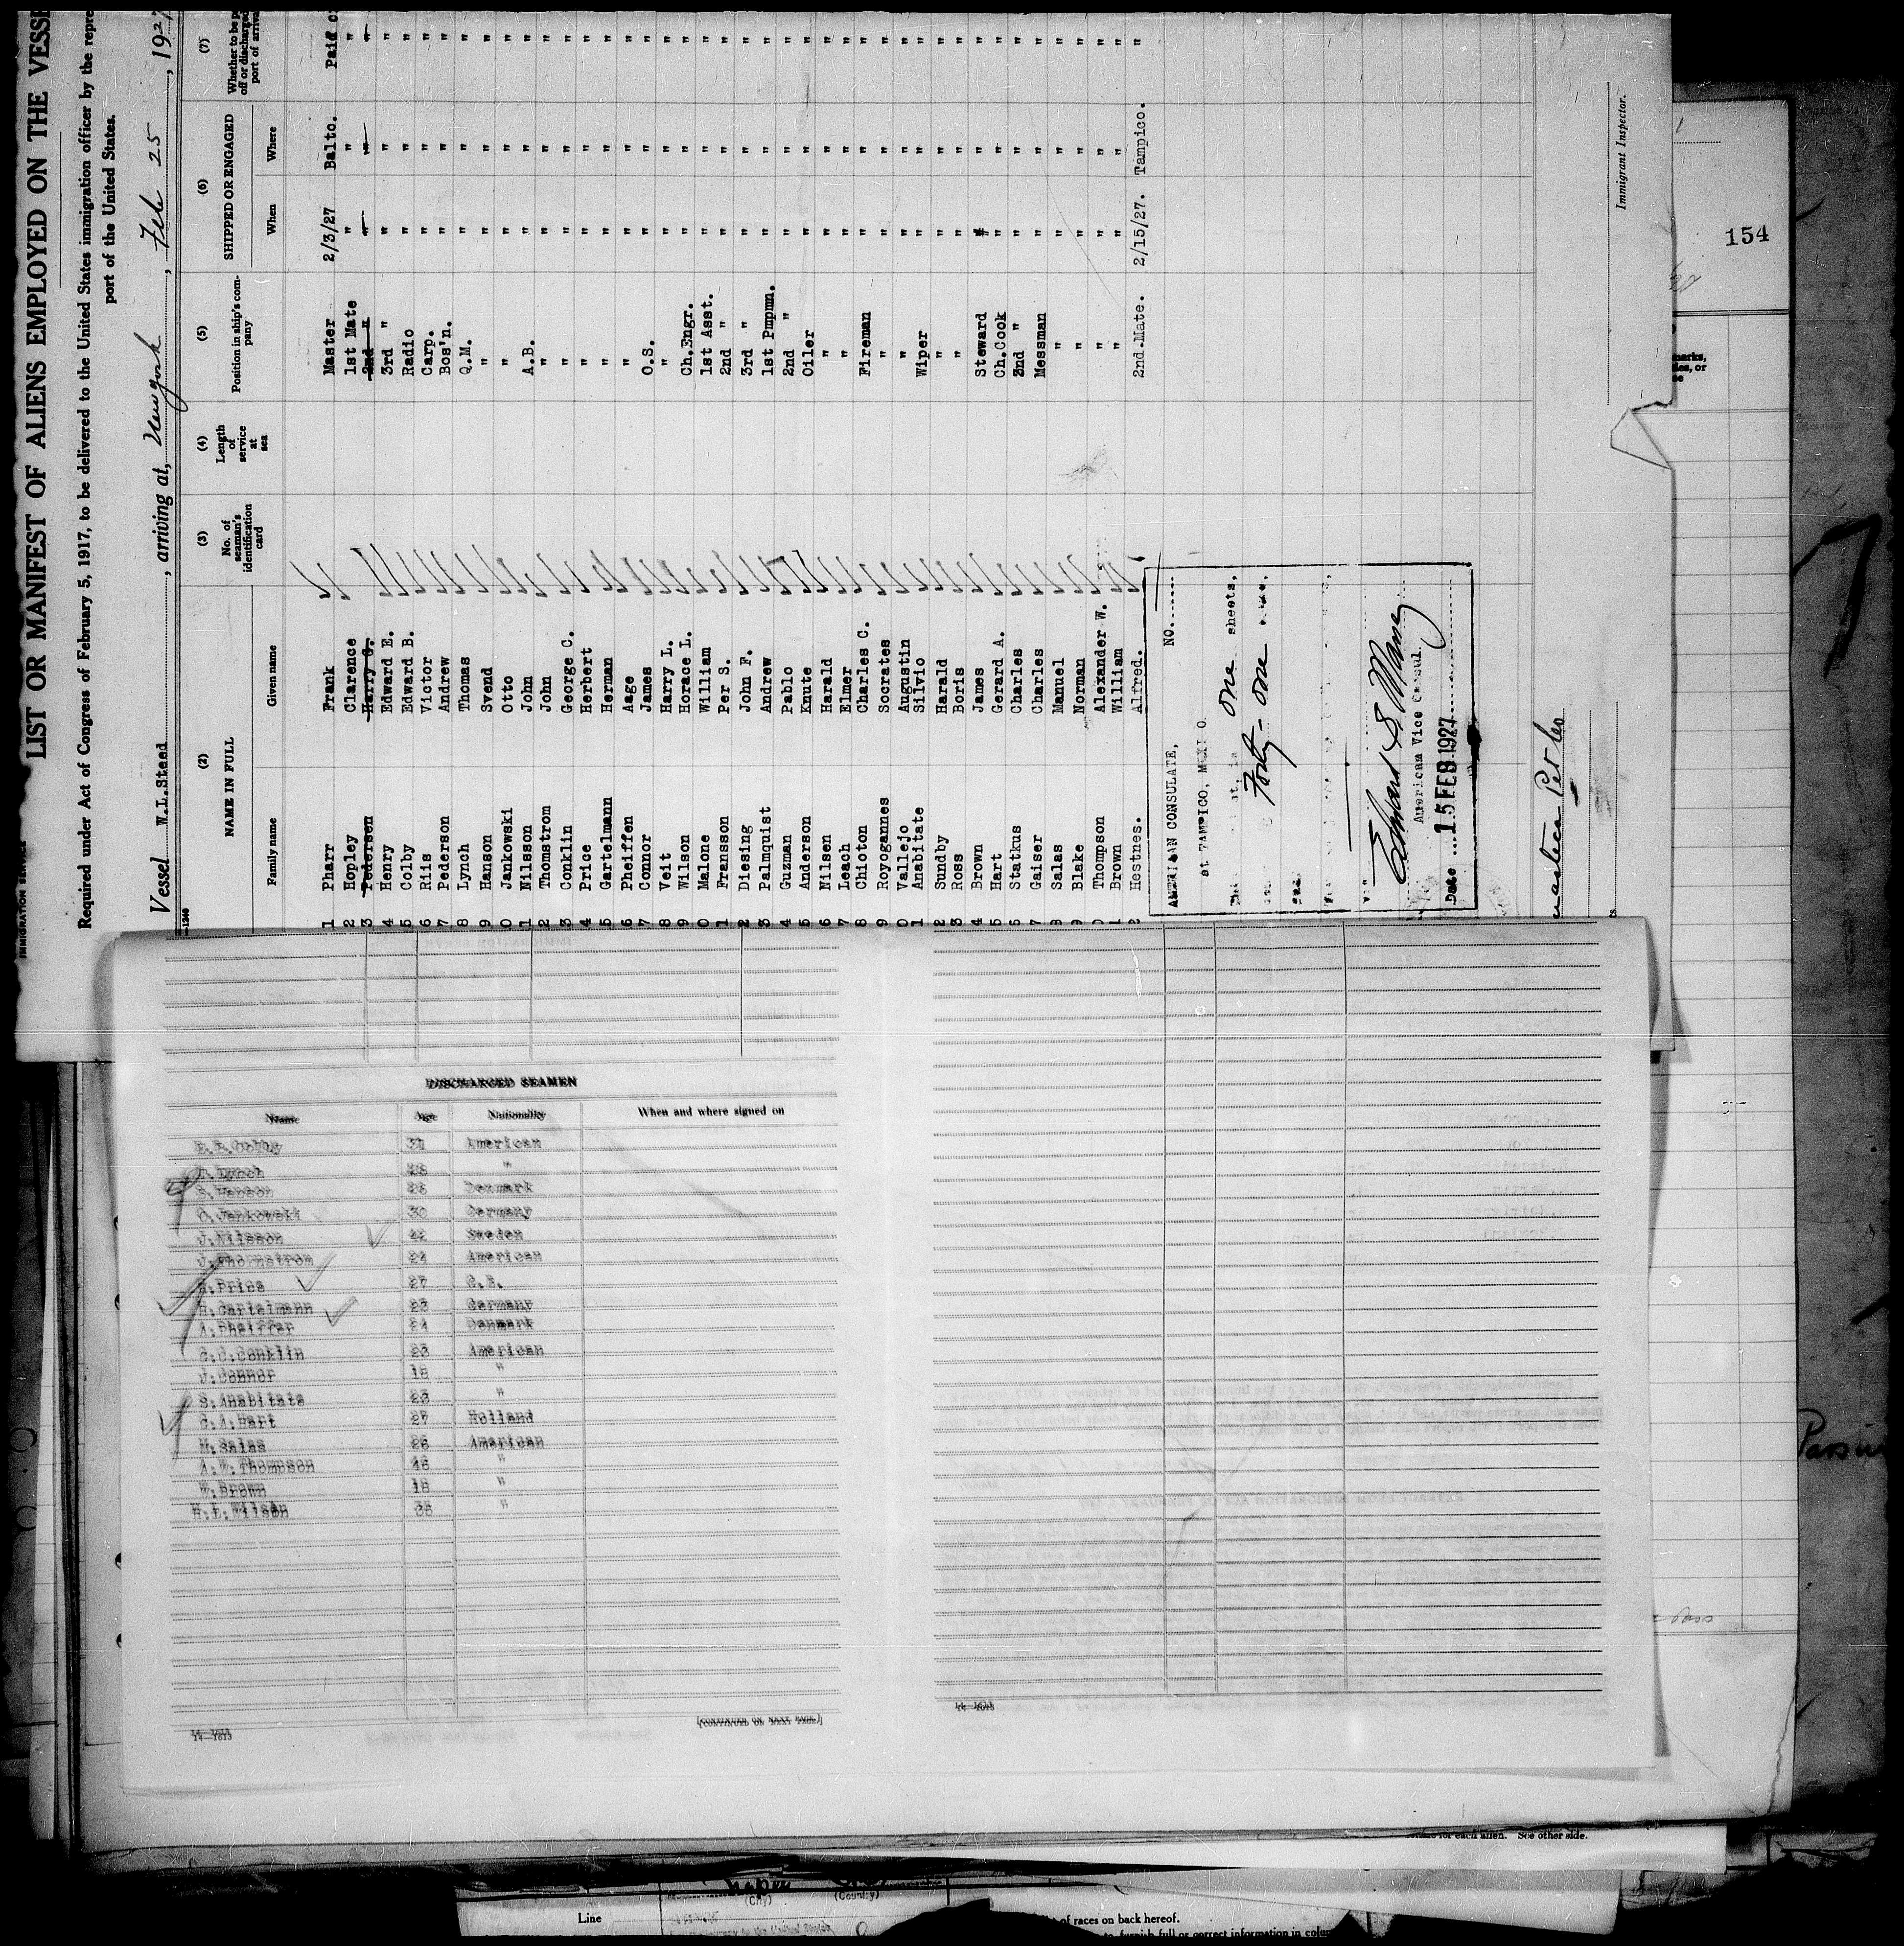 IMMIGRATION SERVICE
LIST OR MANIFEST OF ALIENS EMPLOYED ON THE VESSE
Required under Act of Congress of February 5, 1917, to be delivered to the United States immigration officer by the repre
port of the United States.
Vessel W.L.Steed, arriving at, New York, Feb 25, 1927
(2) (3) (4) (5) (6) (7)
NAME IN FULL
No. of seaman's identification card
Length of service at sea
Position in ship's company
SHIPPED OR ENGAGED
Whether to be p off or discharged port of arriva
Family name Given name When Where
1 Pharr Frank Master 2/3/27 Balto. Paid o
2 Hopley Clarence 1st Mate " " "
3 Pedersen Harry G. 2nd " " " "
4 Henry Edward E. 3rd " " " "
5 Colby Edward B. Radio " " "
6 Riis Victor Carp. " " "
7 Pederson Andrew Bos'n. " " "
8 Lynch Thomas Q.M. " " "
9 Hanson Svend " " " "
0 Jankowski Otto " " " "
1 Nilsson John A.B. " " "
2 Thomstrom John " " " "
3 Conklin George C. " " " "
4 Price Herbert " " " "
5 Gartelmann Herman " " " "
6 Pheiffen Aage " " " "
7 Connor James O.S. " " "
8 Veit Harry L. " " " "
9 Wilson Horace L. Ch.Engr. " " "
0 Malone William 1st Asst. " " "
1 Fransson Per S. 2nd " " " "
2 Diesing John F. 3rd " " " "
3 Palmquist Andrew 1st Pmpmn. " " "
4 Guzman Pablo 2nd " " " "
5 Anderson Knute Oiler " " "
6 Nilsen Harald " " " "
7 Leach Elmer " " " "
8 Chioton Charles C. Fireman " " "
9 Royogannes Socrates " " " "
0 Vallejo Augustin " " " "
1 Anabitate Silvio Wiper " " "
2 Sundby Harald " " " "
3 Ross Boris " " " "
4 Brown James Steward " " "
5 Hart Gerard A. Ch.Cook " " "
6 Statkus Charles 2nd " " " "
7 Gaiser Charles Messman " " "
8 Salas Manuel " " " "
9 Blake Norman " " " "
0 Thompson Alexander W. " " " "
1 Brown William " " " "
2 Hestnes. Alfred. 2nd-Mate. 2/15/27. Tampico. "
AMERICAN CONSULATE, NO.
at TAMPICO, MEXICO
one sheets,
Forty-one
American Vice Consul.
Date 15 FEB 1927
Pet Co
Immigrant Inspector.
154
DISCHARGED SEAMEN
Name Age Nationality When and where signed on
E.B.Colby American
T.Lynch "
S.Hanson Denmark
O.Jankowski 30 Germany
J.Nilsson 42 Sweden
J.Thornstrom 24 American
H.Price 27 G.B.
H.Gartelmann 23 Germany
A.Pheiffer Denmark
G.C.Conklin 23 American
J.Connor 18 "
S.Anabitate 23 "
G.A.Hart 27 Holland
M.Salas American
A.W.Thompson "
W.Brown 18 "
H.L.Wilson "
14—1613
[CONTINUED ON NEXT PAGE]
14—1613
for each alien. See other side.
(City) (County)
Line
of races on back hereof.
to furnish full or correct information in colu